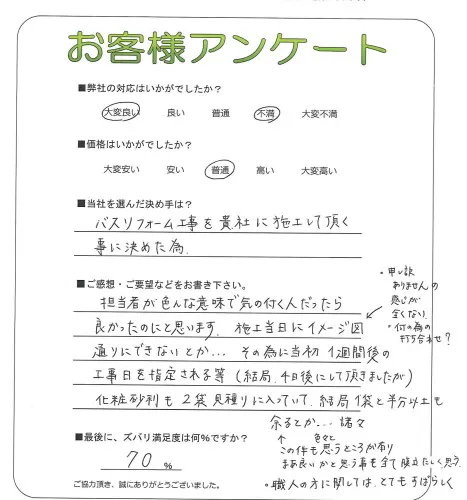 お客様アンケート
■弊社の対応はいかがでしたか？
大変良い 良い 普通 不満 大変不満
■価格はいかがでしたか？
大変安い 安い 普通 高い 大変高い
■当社を選んだ決め手は？
バスリフォーム工事を貴社に施工して頂く
事に決めた為
■ご感想・ご要望などをお書き下さい。
担当者が色んな意味で気の付く人だったら
良かったのにと思います。施工当日にイメージ図
通りにできないとか… その為に当初1週間後の
工事日を指定される等（結局、4日後にして頂きましたが）
化粧砂利も2袋見積りに入っていて、結局1袋と半分以上も
余るとか… 諸々
・申し訳
ありませんの
感じが
全くない
・何の為の
打ち合わせ？
↑ 色々と
この件も思うところが有り
まあ良いかと思う事も全て腹立たしく思う。
・職人の方に関しては、とてもすばらしく
■最後に、ズバリ満足度は何％ですか？
70 ％
ご協力頂き、誠にありがとうございました。